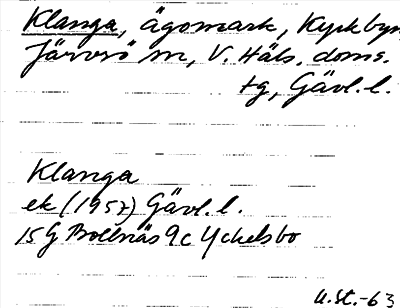 Klanga, ägomark, Kyrkbyn
Järvsö sn, V. Häls. doms.
tg, Gävl. l.
Klanga
ek (1957) Gävl. l.
15G Bollnäs 9c Yckelsbo
U.St.-63